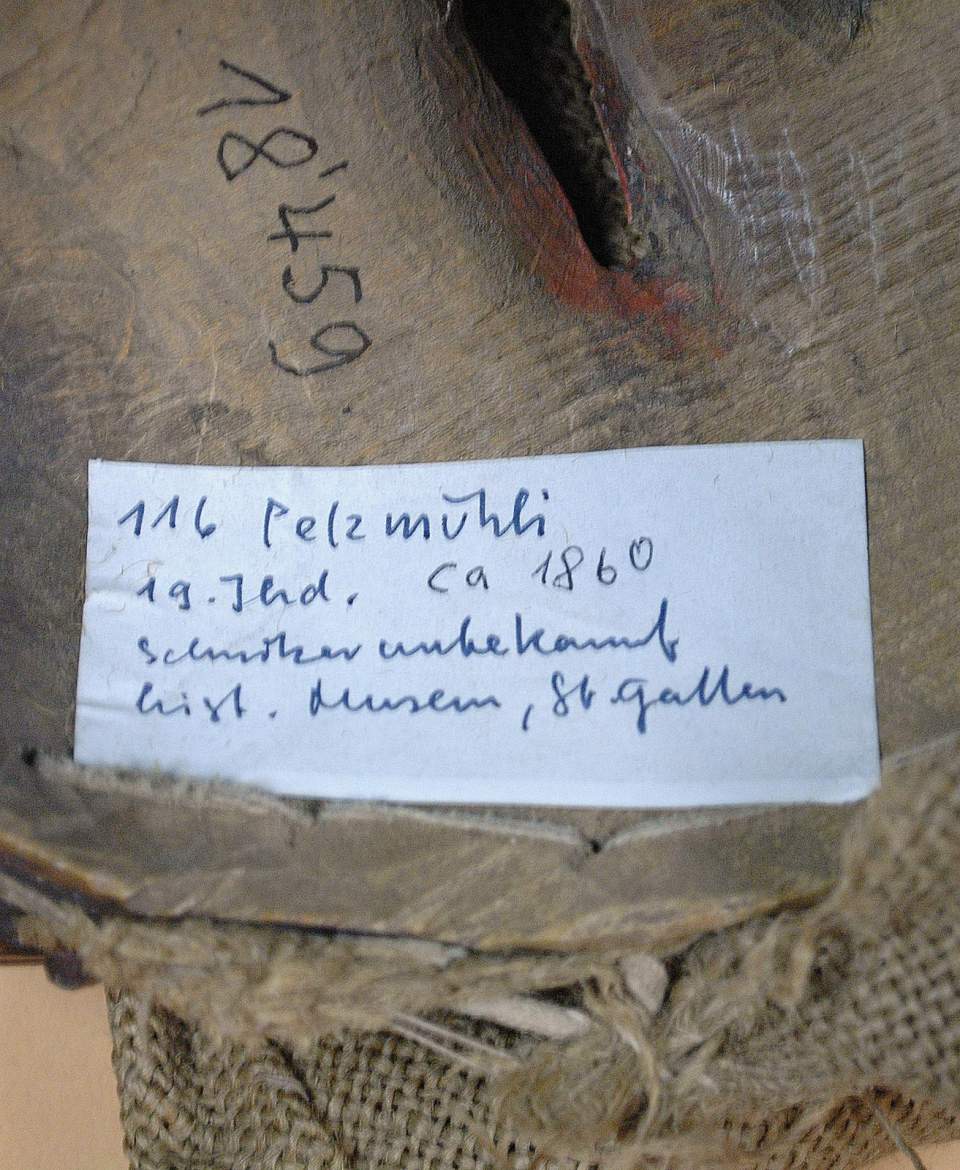 18'459
116 Pelzmühli
19. Jhd. ca 1860
Schnitzer unbekannt
hist. Museum, St. Gallen